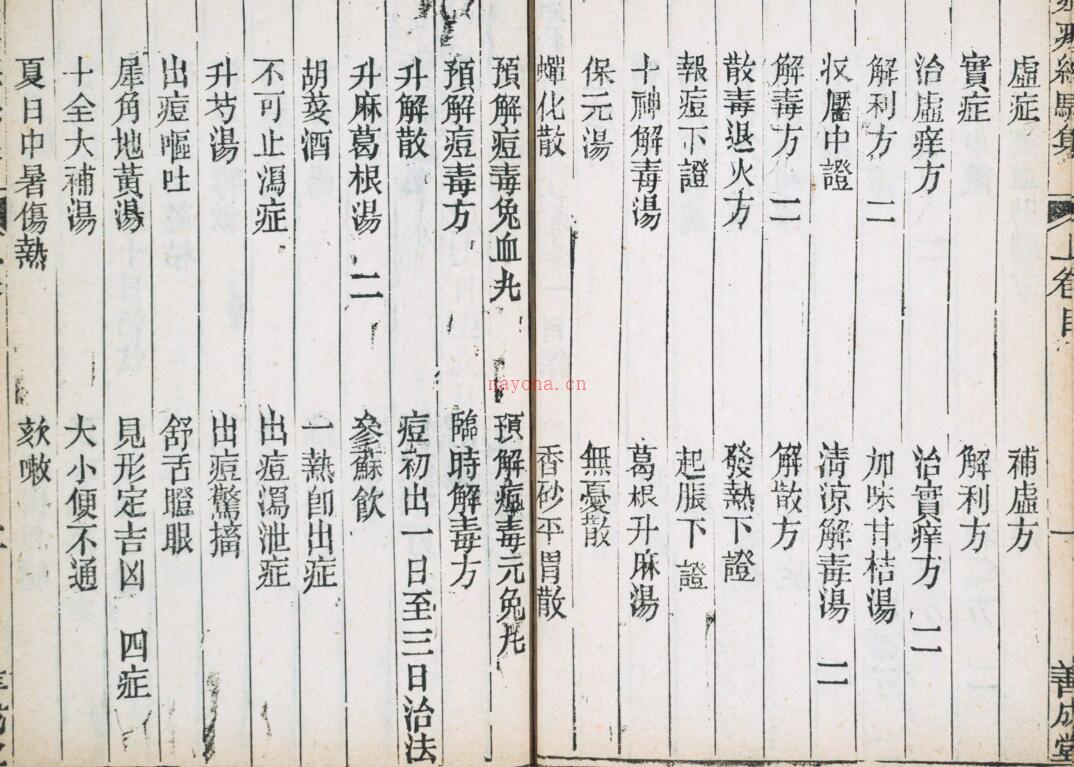 經驗集 上卷目 一 善成堂
虛症 補虛方
實症 解利方
治虛痒方 治實痒方 二
解利方 二 加味甘桔湯
收靨中證 清涼解毒湯 二
解毒方 二 解散方
散毒退火方 發熱下證
報痘下證 起脹下證
十神解毒湯 葛根升麻湯
保元湯 無憂散
蟬化散 香砂平胃散
預解痘毒兔血丸 預解痘毒元兔丸
預解痘毒方 臨時解毒方
升解散 痘初出一日至三日治法
升麻葛根湯 二 參蘇飲
胡荽酒 一熱卽出症
不可止瀉症 出痘瀉泄症
升芍湯 出痘驚搐
出痘嘔吐 舒舌瞪眼
犀角地黃湯 見形定吉凶 四症
十全大補湯 大小便不通
夏日中暑傷熱 欬嗽
nayona.cn